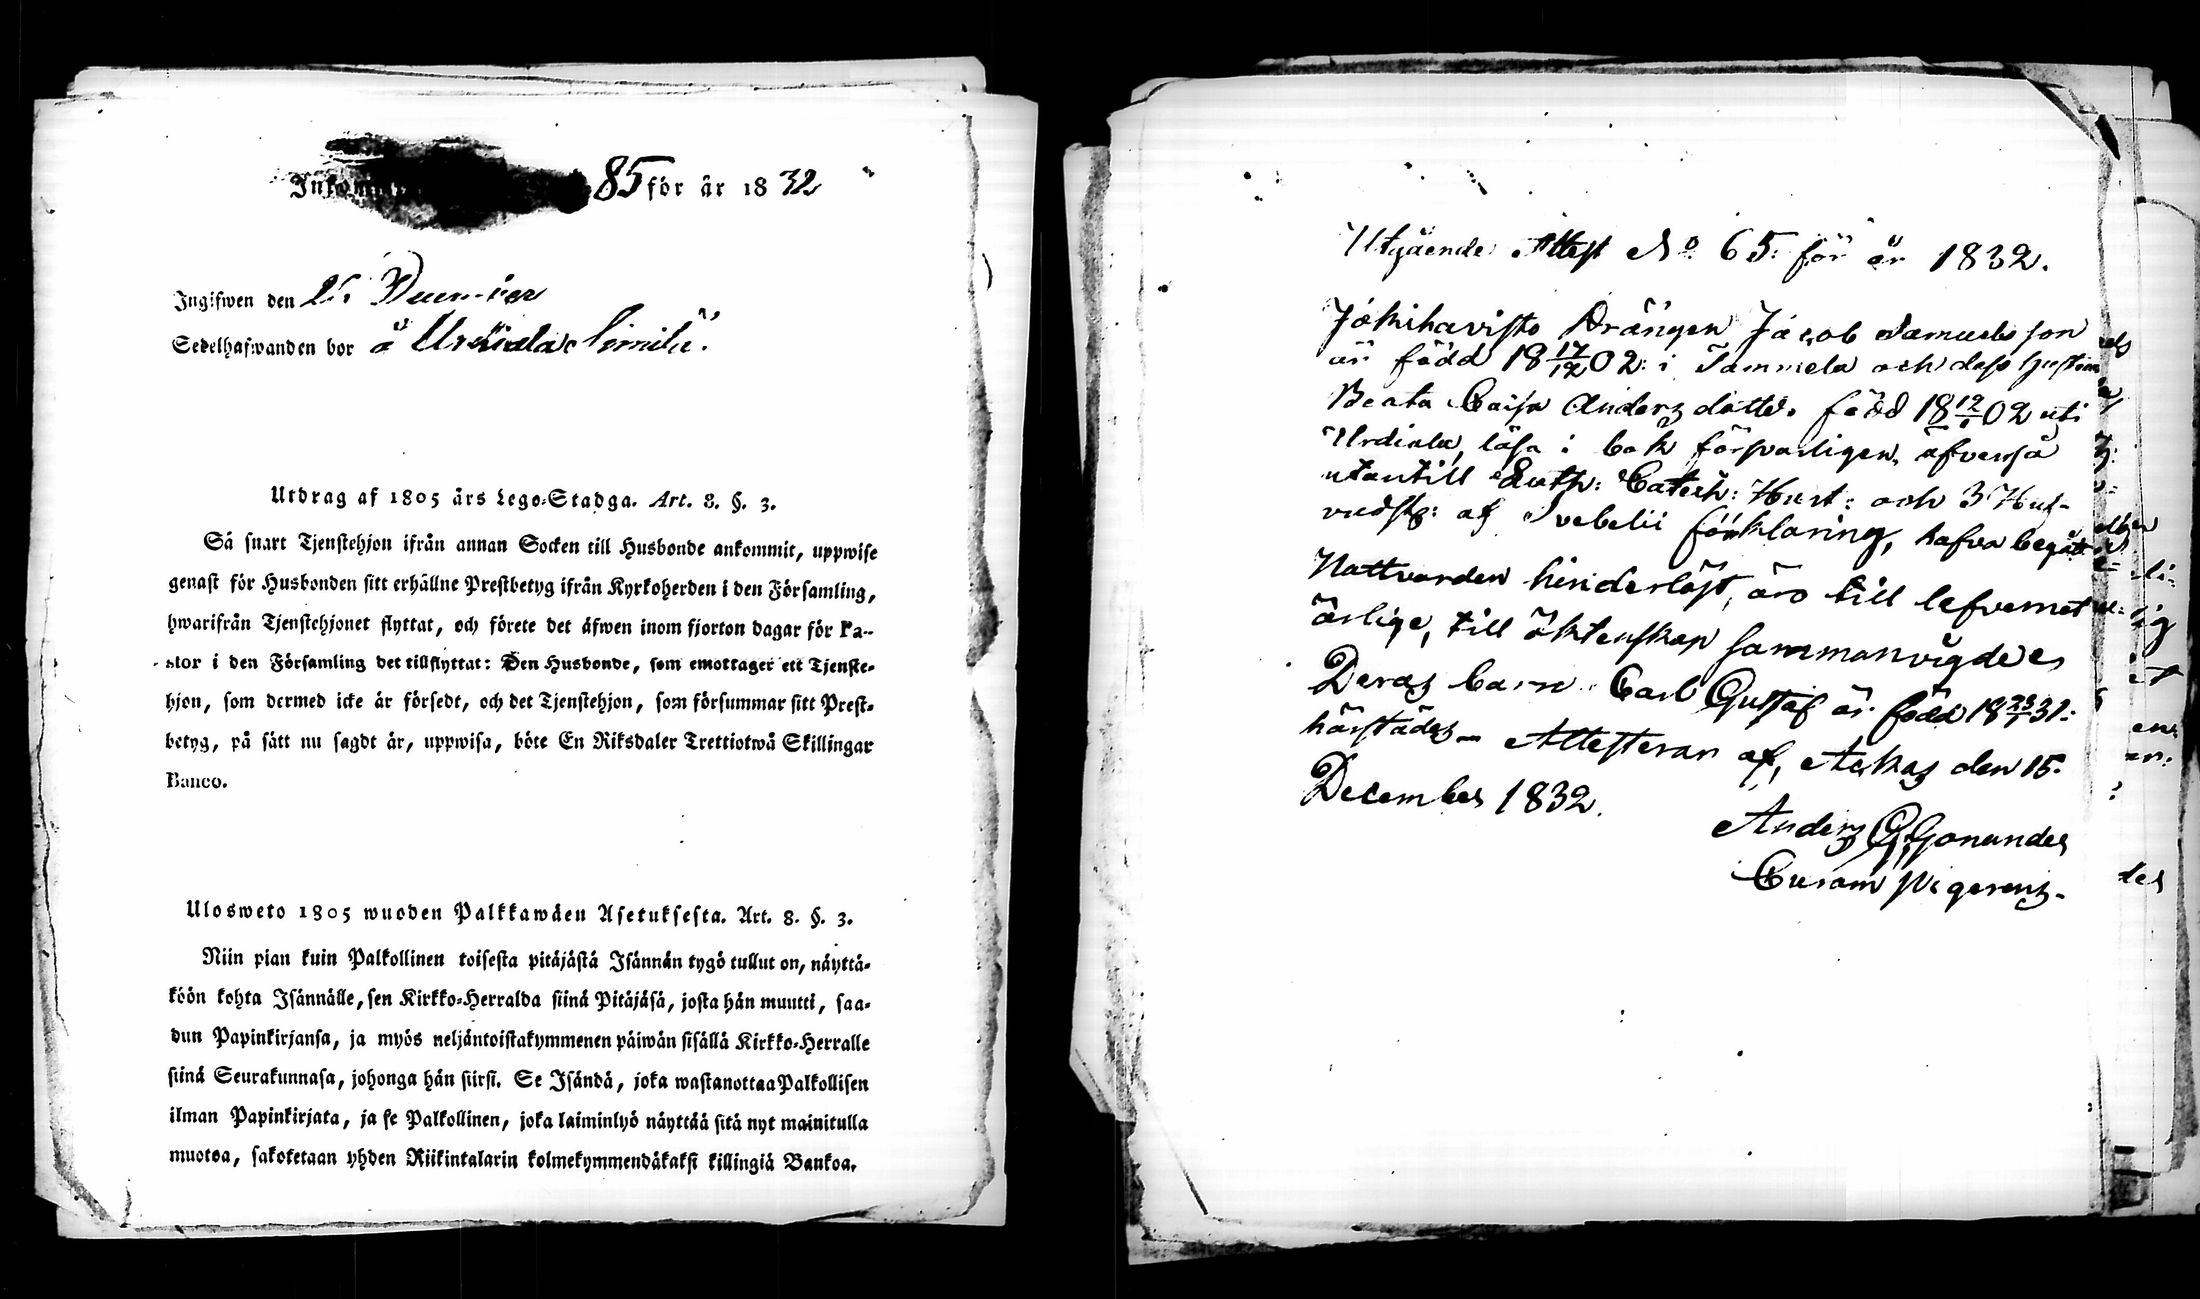 85 för år 1832
Ingifwen den
Sedelhafwanden bor å Urdiala
Utdrag af 1805 års Lego-Stadga. Art. 8. §. 3.
Så snart Tjenstehjon ifrån annan Socken till Husbonde ankommit, uppwise
genast för Husbonden sitt erhållne Prestbetyg ifrån Kyrkoherden i den Församling,
hwarifrån Tjenstehjonet flyttat, och förete det äfwen inom fjorton dagar för Pa-
stor i den Församling det tillflyttat: Den Husbonde, som emottager ett Tjenste-
hjon, som dermed icke är försedt, och det Tjenstehjon, som försummar sitt Prest-
betyg, på sätt nu sagdt är, uppwisa, böte En Riksdaler Trettiotwå Skillingar
Banco.
Ulosweto 1805 wuoden Palkkawäen Asetuksesta. Art. 8. §. 3.
Niin pian kuin Palkollinen toisesta pitäjästä Isännän tygö tullut on, näyttä-
köön kohta Isännälle, sen Kirkko-Herralda siinä Pitäjäsä, josta hän muutti, saa-
dun Papinkirjansa, ja myös neljäntoistakymmenen päiwän sisällä Kirkko-Herralle
siinä Seurakunnasa, johonga hän siirsi. Se Isändä, joka wastanottaa Palkollisen
ilman Papinkirjata, ja se Palkollinen, joka laiminlyö näyttää sitä nyt mainitulla
muotoa, sakotetaan yhden Riikintalarin kolmekymmendäkaksi killingiä Bankoa.
Utgående Attest No 65: för år 1832.
Jokihavisto Drängen Jacob Samuelsson
är född 18 17/12 02: i Tammela och dess hustru
Beata Caisa Andersdotter född 18 12/1 02 uti
Urdiala, läsa i bok försvarligen, äfvenså
utantill Luth: Catech: Hust: och 3 Huf-
vudst: af Svebelii förklaring, hafva begått
Nattvarden hinderlöst, äro till lefvernet
ärlige, till äktenskap sammanvigde
Deras barn Carl Gustaf är född 18 23/1 31:
härstädes – Attesterar af, Ackas den 15.
December 1832.
Anders G.
Curam gerens.